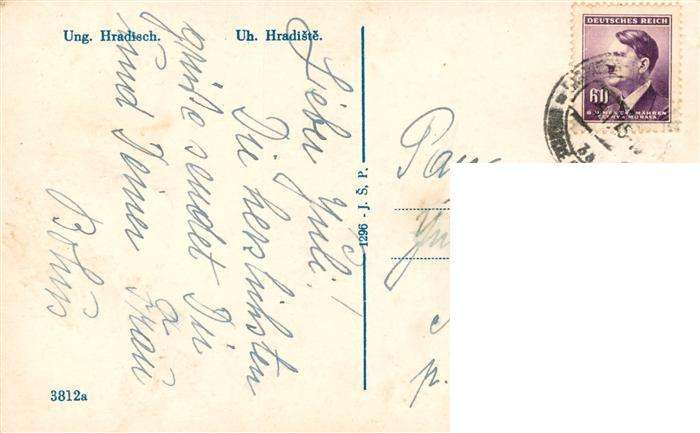 Ung. Hradisch. Uh. Hradiště.
DEUTSCHES REICH
60
BÖHMEN UND MÄHREN
ČECHY A MORAVA
Lieber Juli!
Die herslichsten
grüße sendet Dir
und Deiner Frau
Bohuš
1296 - J. Š. P.
3812a
p.